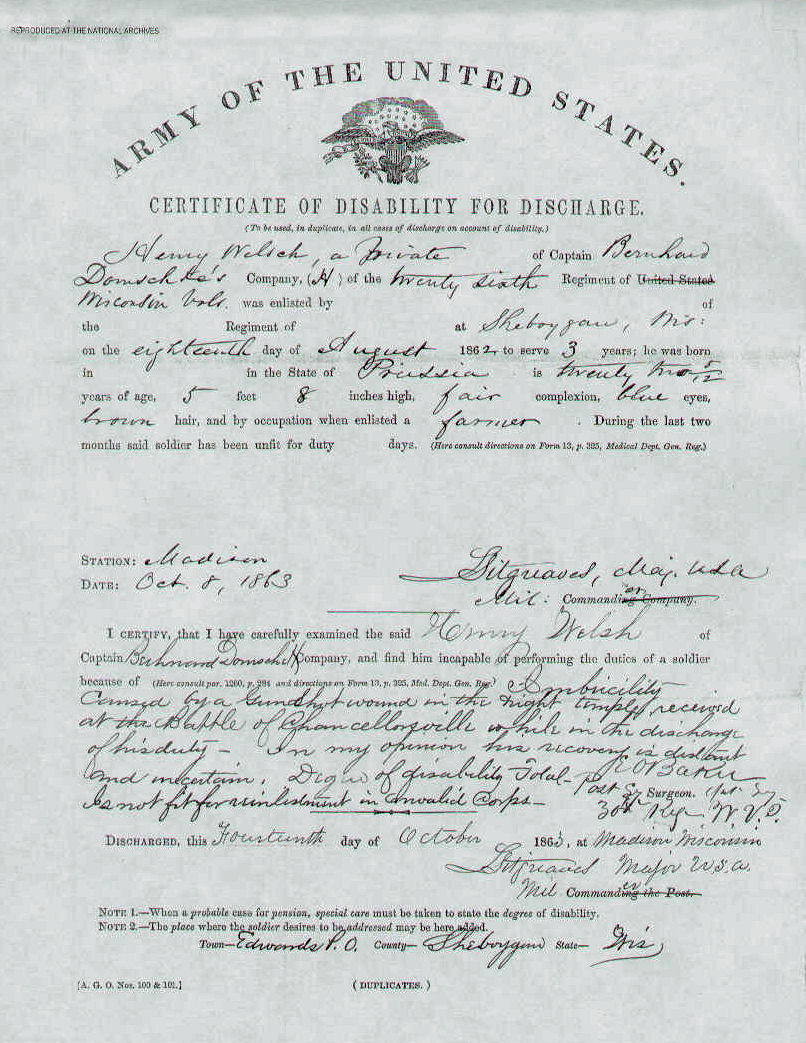 REPRODUCED AT THE NATIONAL ARCHIVES
ARMY OF THE UNITED STATES.
CERTIFICATE OF DISABILITY FOR DISCHARGE.
(To be used, in duplicate, in all cases of discharge on account of disability.)
Henry Welsch, a Private of Captain Bernhard
Domschke's Company, (H) of the twenty sixth Regiment of United States
Wisconsin Vols. was enlisted by of
the Regiment of at Sheboygan, Wis:
on the eighteenth day of August 1862, to serve 3 years; he was born
in in the State of Prussia is twenty two 5/12
years of age, 5 feet 8 inches high, fair complexion, blue eyes,
brown hair, and by occupation when enlisted a farmer . During the last two
months said soldier has been unfit for duty days. (Here consult directions on Form 13, p. 325, Medical Dept. Gen. Reg.)
STATION: Madison
Sitgreaves, Maj. USA
DATE: Oct. 8, 1863
Mil: Commanding Company.
I CERTIFY, that I have carefully examined the said Henry Welsh of
Captain Bernhard Domschk H Company, and find him incapable of performing the duties of a soldier
because of (Here consult par. 1260, p. 284 and directions on Form 13, p. 325, Med. Dept. Gen. Reg.) Imbicility
Caused by a Gunshot wound in the right temple, received
at the Battle of Chancellorsville while in the discharge
of his duty – In my opinion his recovery is distant
and uncertain. Degree of disability Total –
Baker
Post Surgeon.
Is not fit for reinlistment in Invalid Corps –
30th Reg. W. V.
DISCHARGED, this Fourteenth day of October 1863, at Madison Wisconsin
Sitgreaves Major U.S.A.
Mil Commanding the Post.
NOTE 1.—When a probable case for pension, special care must be taken to state the degree of disability.
NOTE 2.—The place where the soldier desires to be addressed may be here added.
Town—Edwards P.O. County—Sheboygan State—Wis,
[A. G. O. Nos. 100 & 101.] (DUPLICATES.)